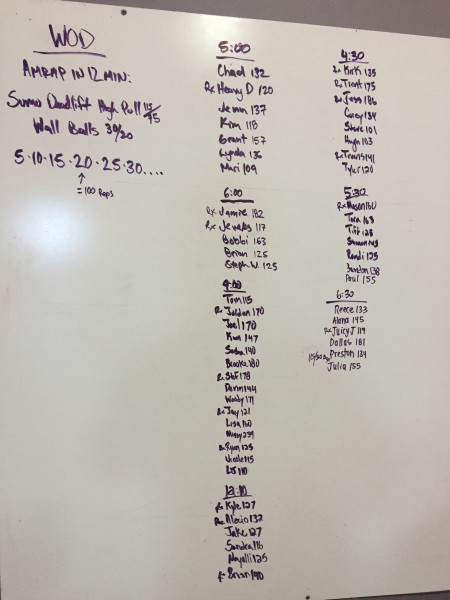 WOD
AMRAP IN 12 MIN:
Sumo Deadlift High Pull 115/75
Wall Balls 30/20
5·10·15·20·25·30....
↑
= 100 Reps
5:00
Chad 132
Rx Henry D 120
Jenn 137
Kim 118
Grant 157
Lynda 136
Mari 109
6:00
Rx Jamie 182
Rx Jewels 117
Bobbi 163
Brian 125
Steph W. 125
9:00
Tom 115
Rx Jordan 170
Joel 170
Kim 147
140
Brooke 180
Rx 178
144
Woody 171
Rx Jay 121
Lisa 110
Missy 239
Rx Ryan 125
Nicole 115
110
12:10
Rx Kyle 127
Rx Alecio 132
Jake 127
Sandra 116
125
Rx Brian 190
4:30
Rx Kirk 135
Rx Trent 175
Rx Jess 186
Corey 134
Steve 101
Hugh 103
Rx Travis 141
Tyler 120
5:30
Rx Mason 160
Tara 163
Tiff 128
Randi 125
Brandon 138
Paul 155
6:30
Reece 133
Alana 145
Rx Juicy J 119
Dallas 181
Preston 134
Julia 155